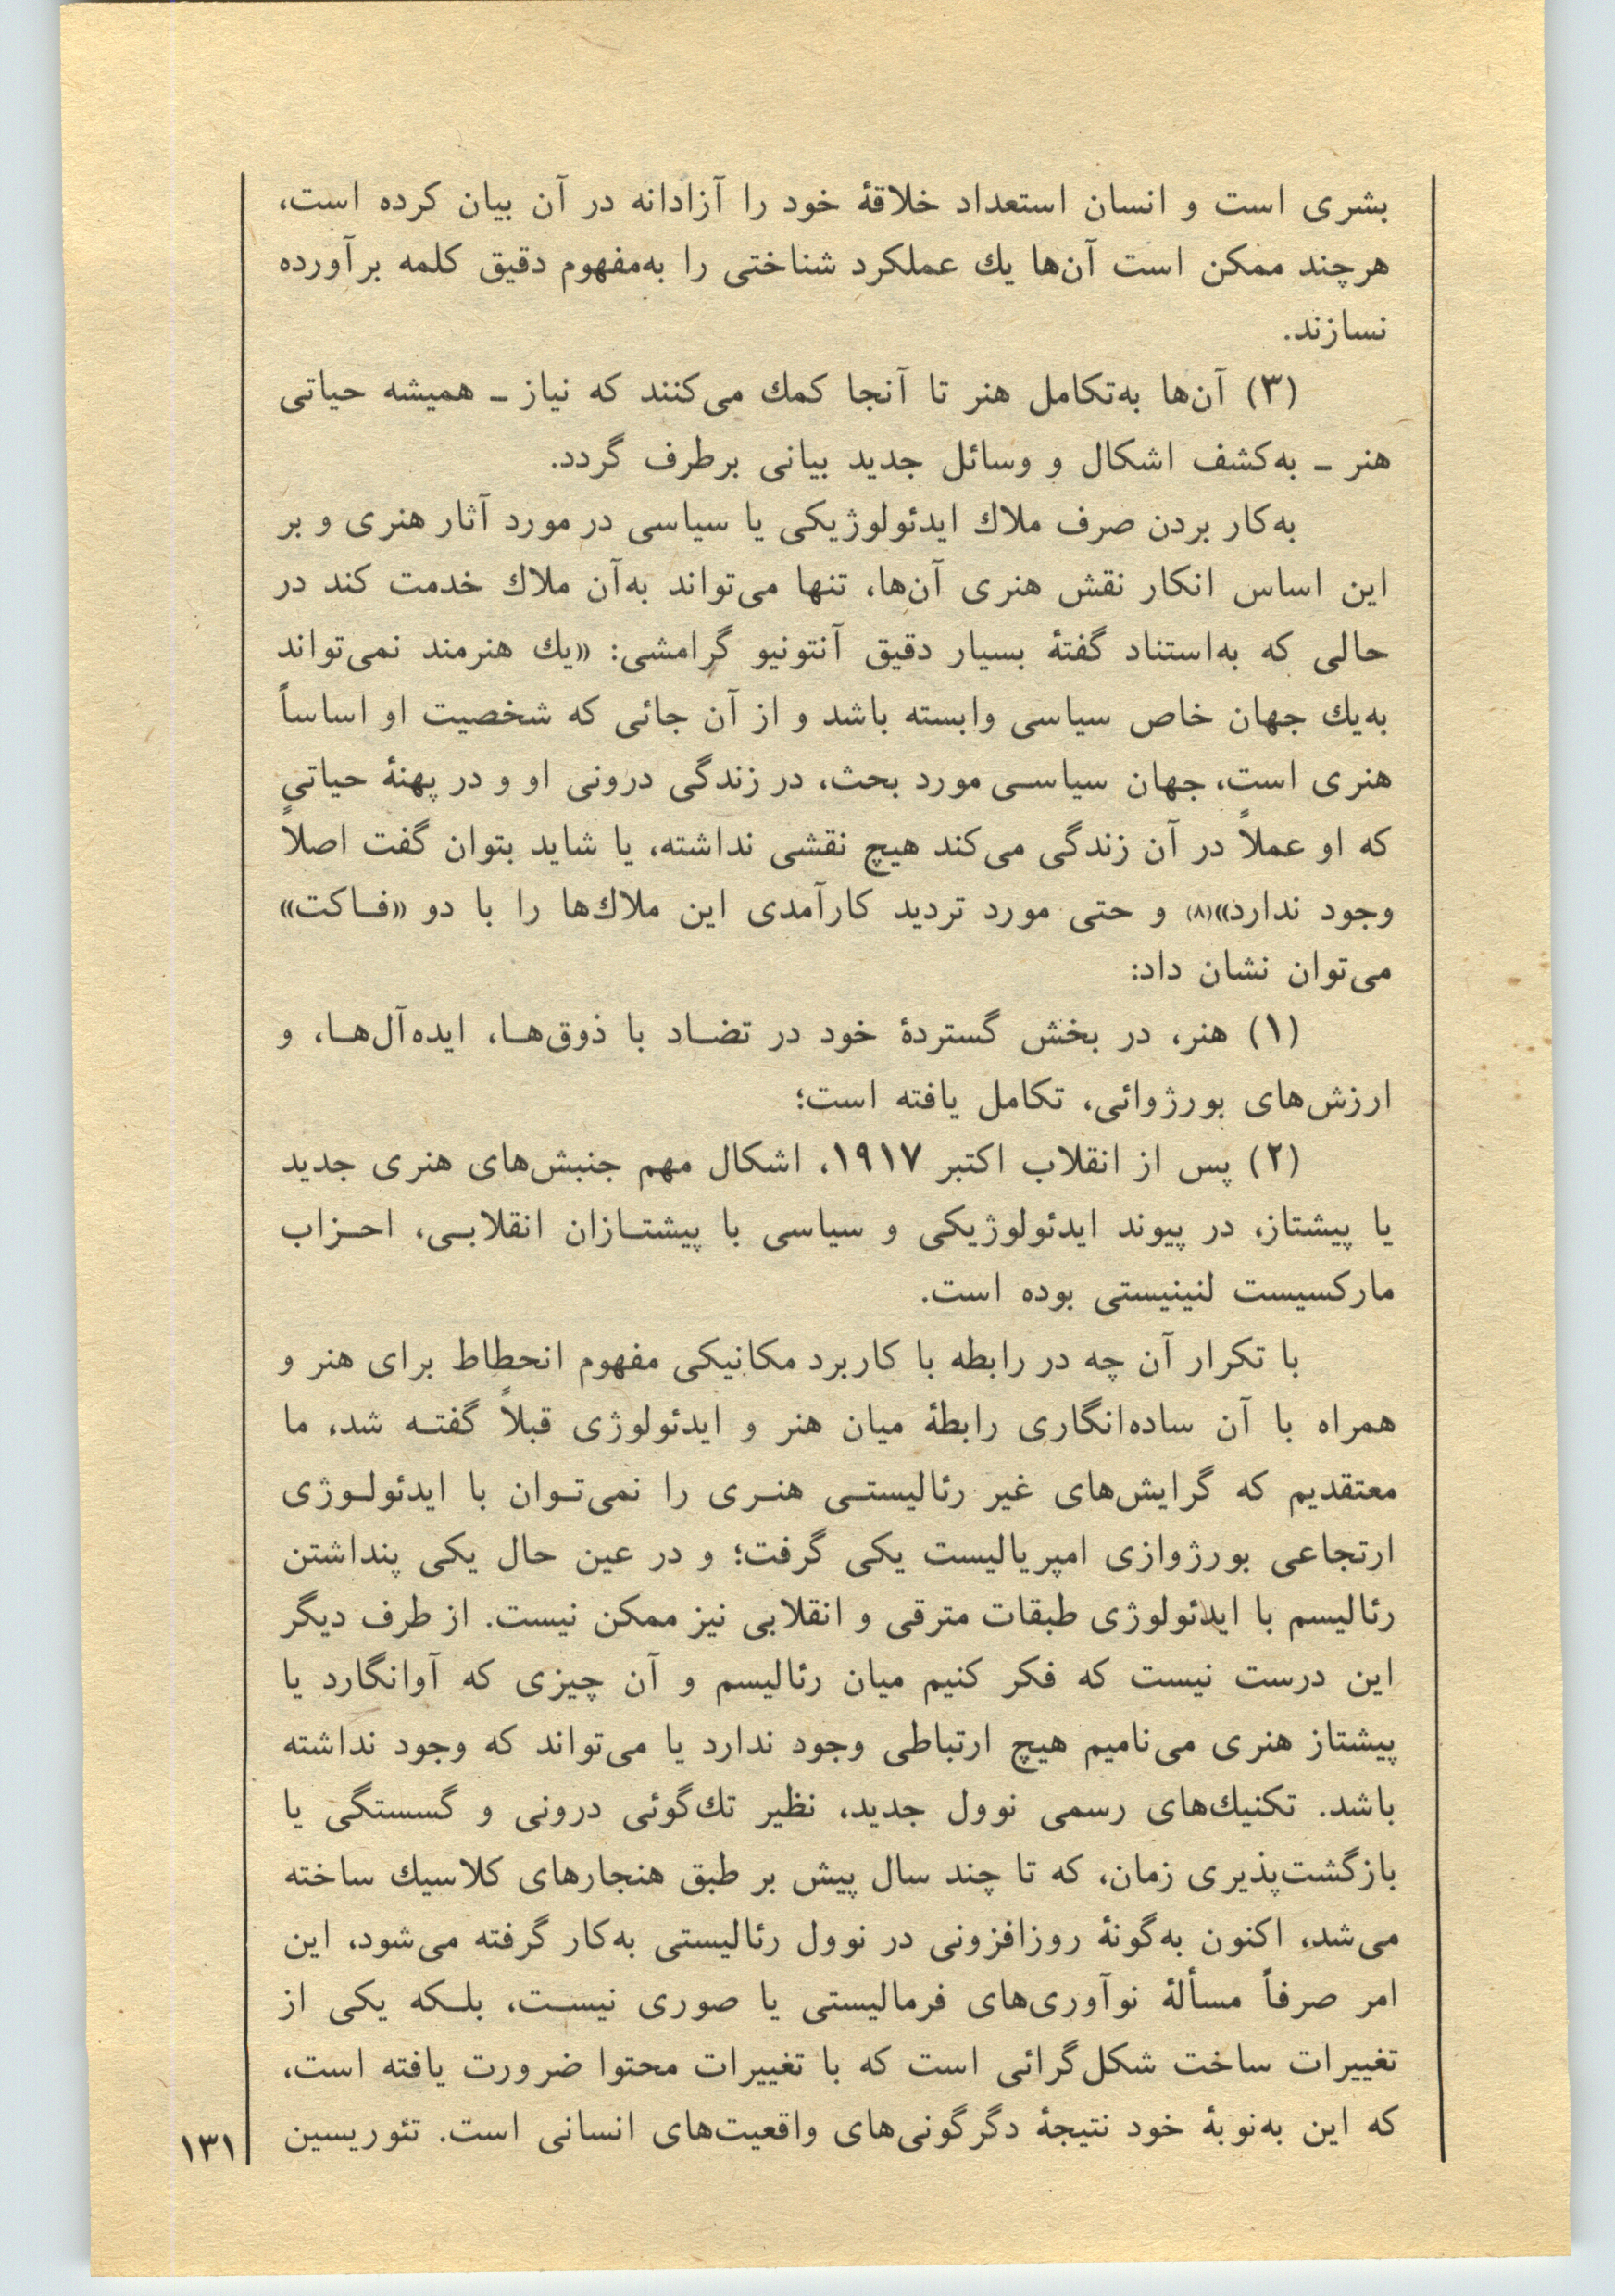 بشری است و انسان استعداد خلاقهٔ خود را آزادانه در آن بیان کرده است،
هرچند ممکن است آن‌ها یك عملکرد شناختی را به‌مفهوم دقیق کلمه برآورده
نسازند.
(۳) آن‌ها به‌تکامل هنر تا آنجا کمك می‌کنند که نیاز ـ همیشه حیاتی
هنر ـ به‌کشف اشکال و وسائل جدید بیانی برطرف گردد.
به‌کار بردن صرف ملاك ایدئولوژیکی یا سیاسی در مورد آثار هنری و بر
این اساس انکار نقش هنری آن‌ها، تنها می‌تواند به‌آن ملاك خدمت کند در
حالی که به‌استناد گفتهٔ بسیار دقیق آنتونیو گرامشی: «یك هنرمند نمی‌تواند
به‌یك جهان خاص سیاسی وابسته باشد و از آن جائی که شخصیت او اساساً
هنری است، جهان سیاسی مورد بحث، در زندگی درونی او و در پهنهٔ حیاتی
که او عملاً در آن زندگی می‌کند هیچ نقشی نداشته، یا شاید بتوان گفت اصلاً
وجود ندارد»(۸) و حتی مورد تردید کارآمدی این ملاك‌ها را با دو «فـاکت»
می‌توان نشان داد:
(۱) هنر، در بخش گستردهٔ خود در تضـاد با ذوق‌هـا، ایده‌آل‌هـا، و
ارزش‌های بورژوائی، تکامل یافته است؛
(۲) پس از انقلاب اکتبر ۱۹۱۷، اشکال مهم جنبش‌های هنری جدید
یا پیشتاز، در پیوند ایدئولوژیکی و سیاسی با پیشتـازان انقلابـی، احـزاب
مارکسیست لنینیستی بوده است.
با تکرار آن چه در رابطه با کاربرد مکانیکی مفهوم انحطاط برای هنر و
همراه با آن ساده‌انگاری رابطهٔ میان هنر و ایدئولوژی قبلاً گفتـه شد، ما
معتقدیم که گرایش‌های غیر رئالیستـی هنـری را نمی‌تـوان با ایدئولـوژی
ارتجاعی بورژوازی امپریالیست یکی گرفت؛ و در عین حال یکی پنداشتن
رئالیسم با ایدئولوژی طبقات مترقی و انقلابی نیز ممکن نیست. از طرف دیگر
این درست نیست که فکر کنیم میان رئالیسم و آن چیزی که آوانگارد یا
پیشتاز هنری می‌نامیم هیچ ارتباطی وجود ندارد یا می‌تواند که وجود نداشته
باشد. تکنیك‌های رسمی نوول جدید، نظیر تك‌گوئی درونی و گسستگی یا
بازگشت‌پذیری زمان، که تا چند سال پیش بر طبق هنجارهای کلاسیك ساخته
می‌شد، اکنون به‌گونهٔ روزافزونی در نوول رئالیستی به‌کار گرفته می‌شود، این
امر صرفاً مسألهٔ نوآوری‌های فرمالیستی یا صوری نیسـت، بلـکه یکی از
تغییرات ساخت شکل‌گرائی است که با تغییرات محتوا ضرورت یافته است،
که این به‌نوبهٔ خود نتیجهٔ دگرگونی‌های واقعیت‌های انسانی است. تئوریسین
۱۳۱